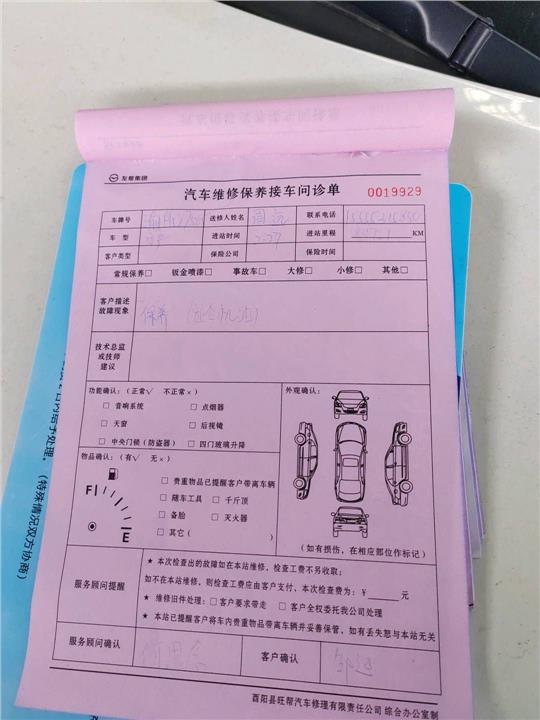 友帮集团
汽车维修保养接车问诊单 0019929
车牌号 送修人姓名 联系电话
车 型 进站时间 进站里程 KM
客户类型 保险公司 保险时间
常规保养□ 钣金喷漆□ 事故车□ 大修□ 小修□ 其他□
客户描述
故障现象
保养
技术总监
或技师
建议
功能确认:(正常√ 不正常×) 外观确认:
□ 音响系统 □ 点烟器
□ 天窗 □ 后视镜
□ 中央门锁(防盗器) □ 四门玻璃升降
物品确认:(有√ 无×)
□ 贵重物品已提醒客户带离车辆
F □ 随车工具 □ 千斤顶
□ 备胎 □ 灭火器
E □ 其它( )
(如有损伤,在相应部位作标记)
服务顾问提醒
★ 本次检查出的故障如在本站维修,检查工费不另收取;
如不在本站维修,则检查工费应由客户支付,本次检查费为:¥ 元
★ 维修旧件处理:□ 客户要求带走 □ 客户全权委托我公司处理
★ 本站已提醒客户将车内贵重物品带离车辆并妥善保管,如有丢失恕与本站无关
服务顾问确认 客户确认
酉阳县旺帮汽车修理有限责任公司 综合办公室制
内给予处理。(特殊情况双方协商)